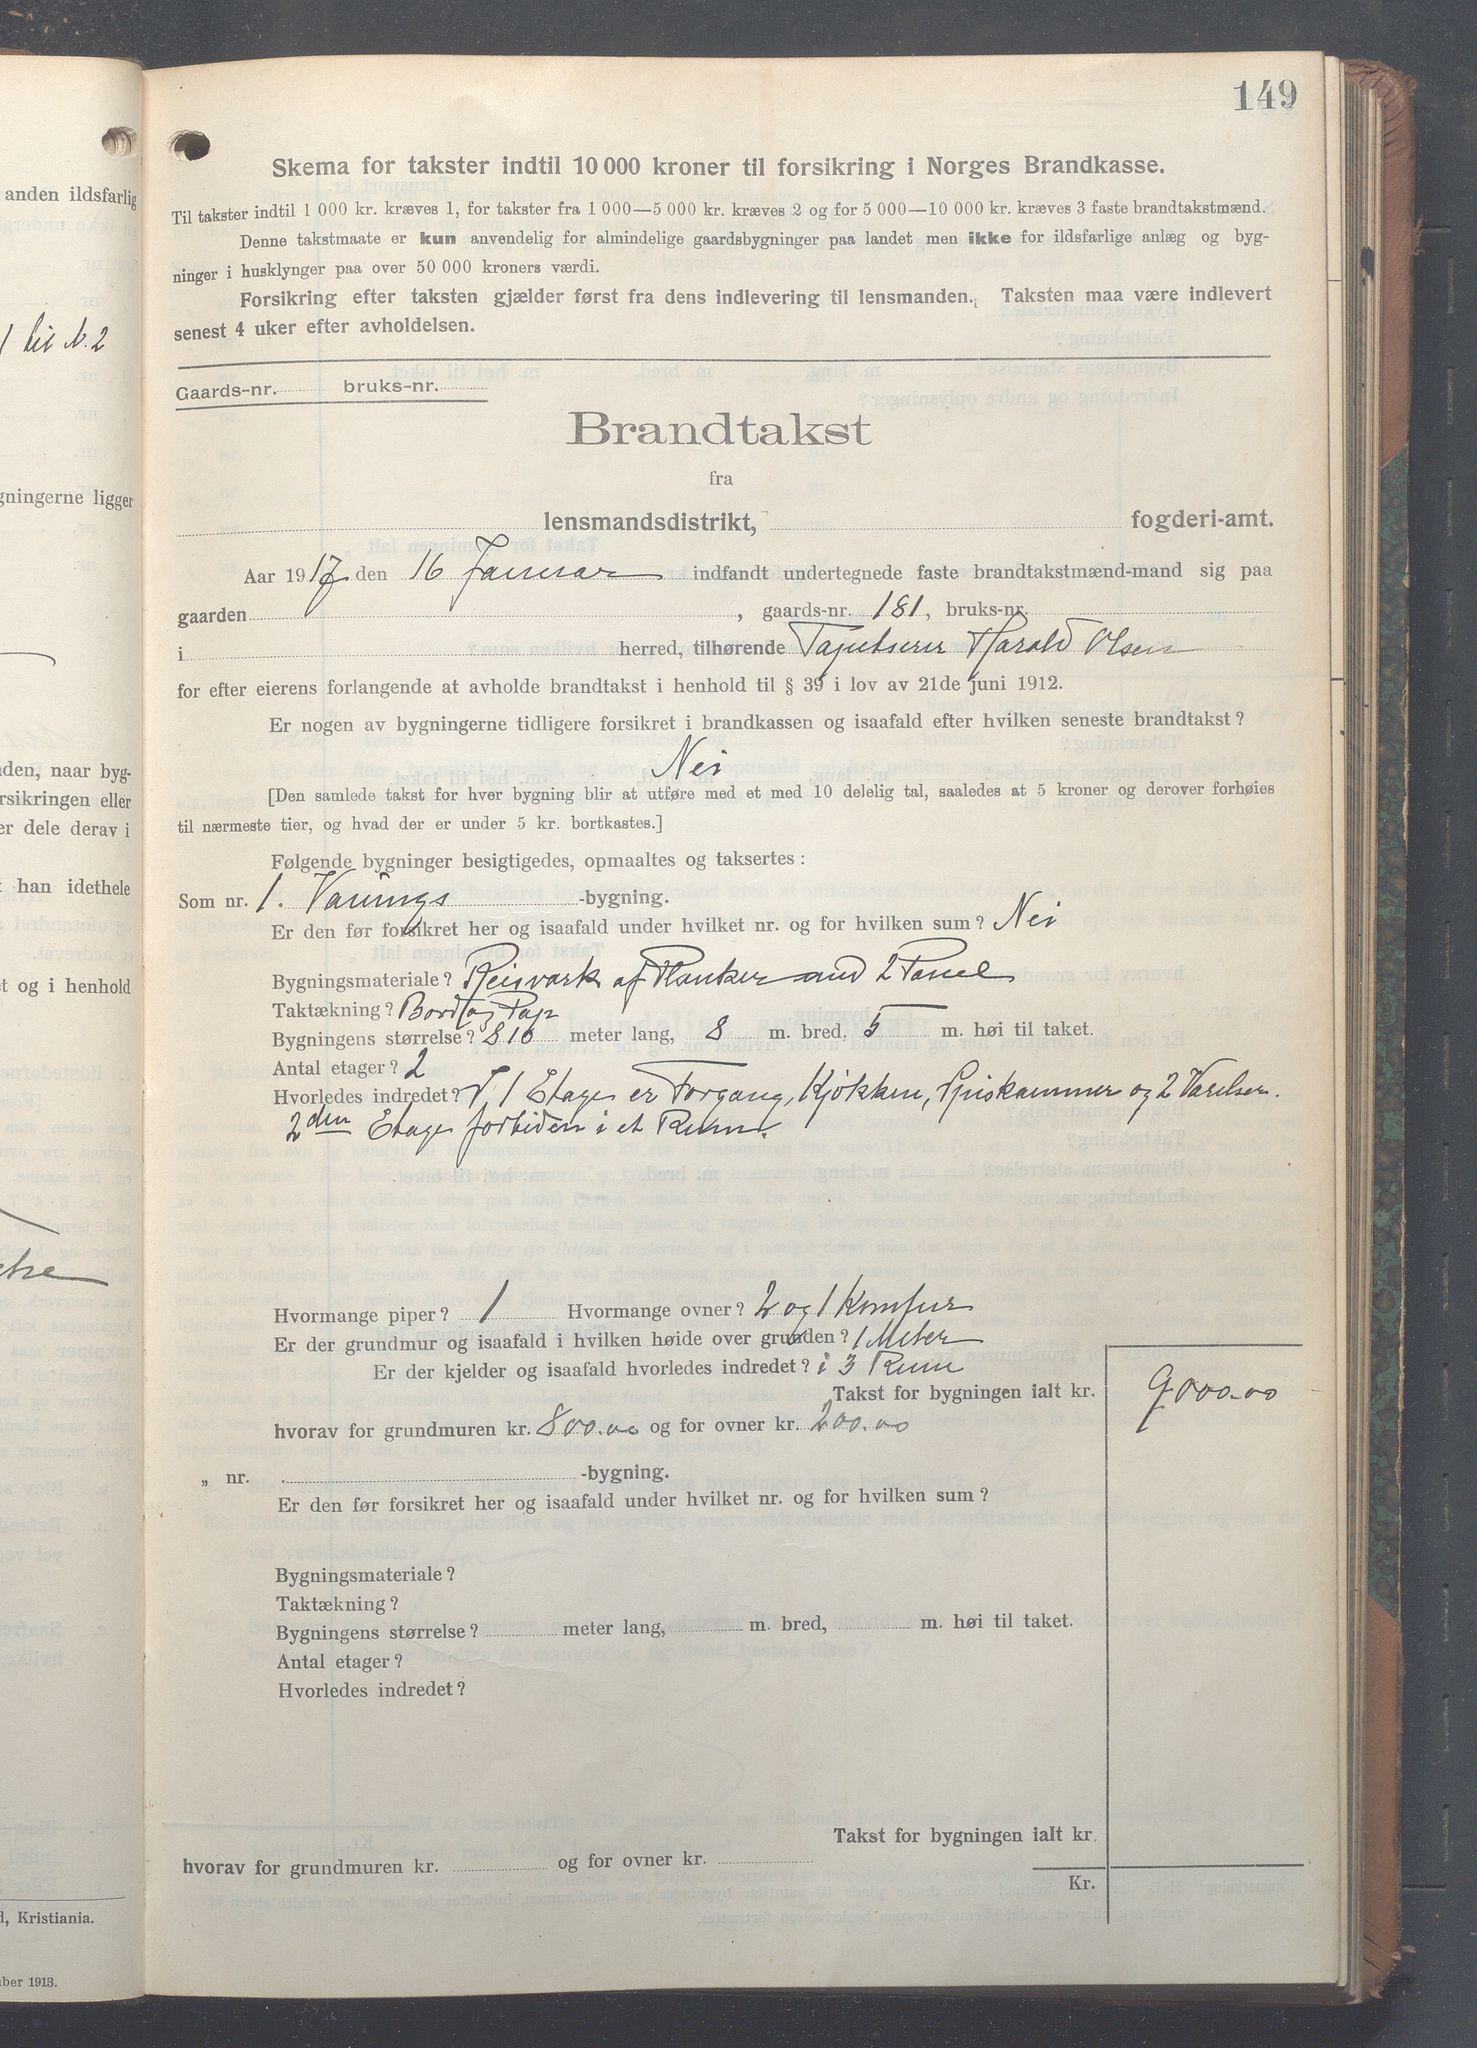 149
anden ildsfarlig
til N. 2
gningerne ligger
den, naar byg-
rsikringen eller
er dele derav i
han idethele
t og i henhold
d, Kristiania.
ber 1913.
Skema for takster indtil 10 000 kroner til forsikring i Norges Brandkasse.
Til takster indtil 1 000 kr. kræves 1, for takster fra 1 000—5 000 kr. kræves 2 og for 5 000—10 000 kr. kræves 3 faste brandtakstmænd.
Denne takstmaate er kun anvendelig for almindelige gaardsbygninger paa landet men ikke for ildsfarlige anlæg og byg-
ninger i husklynger paa over 50 000 kroners værdi.
Forsikring efter taksten gjælder først fra dens indlevering til lensmanden. Taksten maa være indlevert
senest 4 uker efter avholdelsen.
Gaards-nr. bruks-nr.
Brandtakst
fra
lensmandsdistrikt, fogderi-amt.
Aar 1917 den 16 Januar indfandt undertegnede faste brandtakstmænd-mand sig paa
gaarden , gaards-nr. 181, bruks-nr.
i herred, tilhørende Tapetserer Harald Olsen
for efter eierens forlangende at avholde brandtakst i henhold til § 39 i lov av 21de juni 1912.
Er nogen av bygningerne tidligere forsikret i brandkassen og isaafald efter hvilken seneste brandtakst?
Nei
[Den samlede takst for hver bygning blir at utføre med et med 10 delelig tal, saaledes at 5 kroner og derover forhøies
til nærmeste tier, og hvad der er under 5 kr. bortkastes.]
Følgende bygninger besigtigedes, opmaaltes og taksertes:
Som nr. 1. Vaanings -bygning.
Er den før forsikret her og isaafald under hvilket nr. og for hvilken sum? Nei
Bygningsmateriale? Reisværk af Planker med 2 Panel
Taktækning? Bord og Pap
Bygningens størrelse? 810 meter lang, 8 m. bred, 5 m. høi til taket.
Antal etager? 2
Hvorledes indredet? I, 1 Etage er Forgang, Kjøkken, Spiskammer og 2 Værelser.
2den Etage forbiden i et Rum.
Hvormange piper? 1 Hvormange ovner? 2 og 1 Komfur
Er der grundmur og isaafald i hvilken høide over grunden? 1 Meter
Er der kjelder og isaafald hvorledes indredet? i 3 Rum
Takst for bygningen ialt kr. 9000.00
hvorav for grundmuren kr. 800.00 og for ovner kr. 200.00
„ nr. -bygning.
Er den før forsikret her og isaafald under hvilket nr. og for hvilken sum?
Bygningsmateriale?
Taktækning?
Bygningens størrelse? meter lang, m. bred, m. høi til taket.
Antal etager?
Hvorledes indredet?
Takst for bygningen ialt kr.
hvorav for grundmuren kr. og for ovner kr.
Kr.